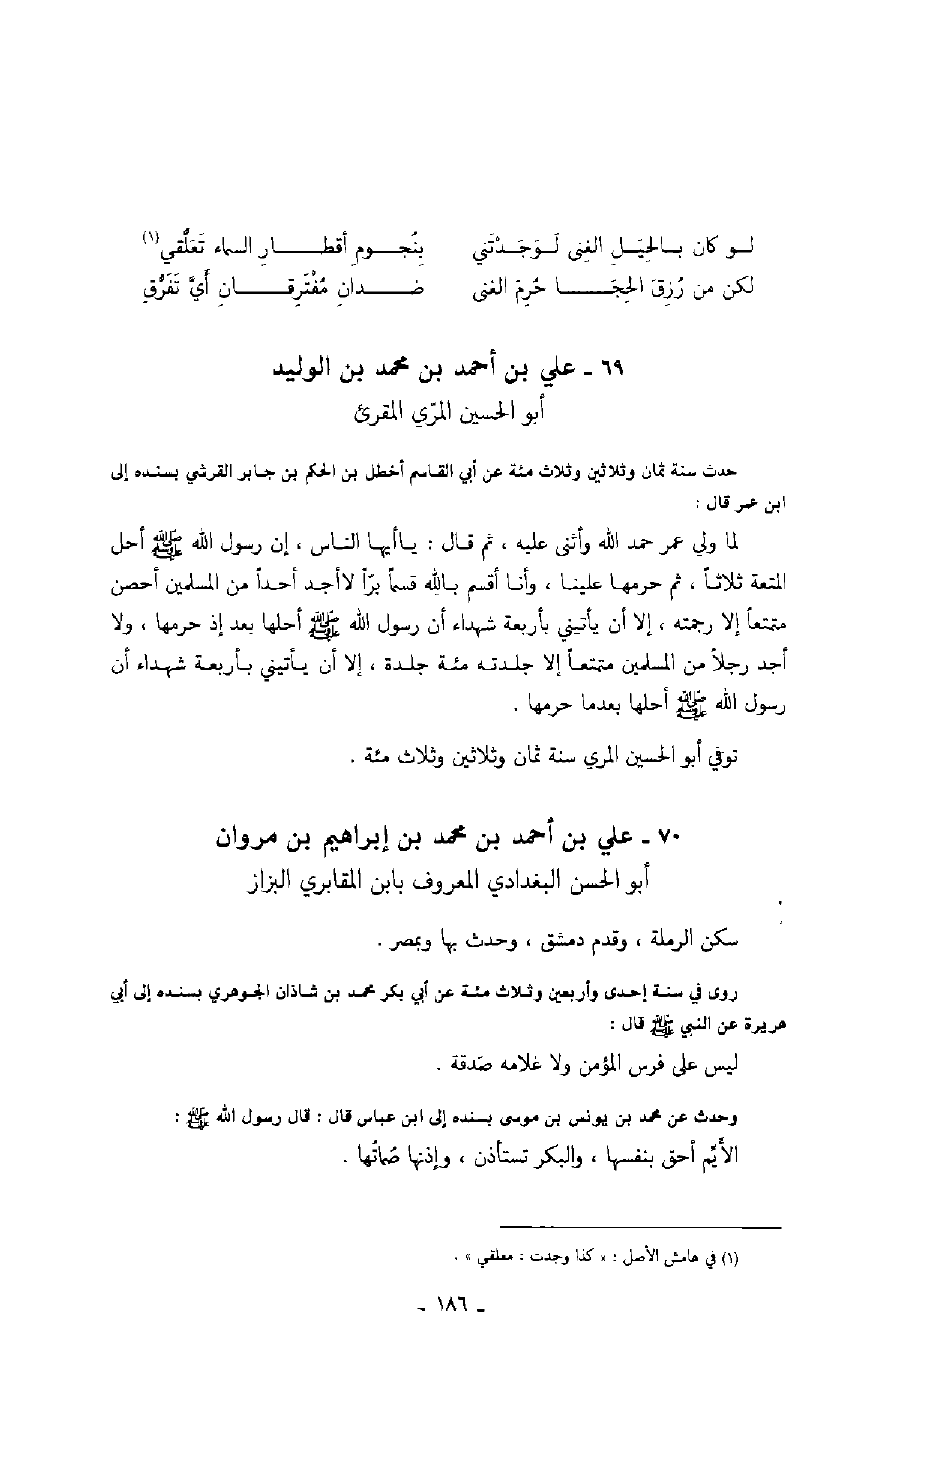 لو كان بالحِيَلِ الغِنى لَوَجَدْتَني بِنُجومِ أقطارِ السماء تَعَلُّقي(١)
لكن من رُزِقَ الحِجَا حُرِمَ الغنى ضدانِ مُفْتَرِقانِ أيَّ تَفَرُّقِ
٦٩ ـ علي بن أحمد بن محمد بن الوليد
أبو الحسين المرّي المقرئ
حدث سنة ثمان وثلاثين وثلاث مئة عن أبي القاسم أخطل بن الحكم بن جابر القرشي بسنده إلى
ابن عمر قال :
لما ولي عمر حمد الله وأثنى عليه ، ثم قال : ياأيها الناس ، إن رسول الله ﷺ أحل
المتعة ثلاثاً ، ثم حرمها علينا ، وأنا أقسم بالله قسماً برّاً لاأجد أحداً من المسلمين أحصن
متمتعاً إلا رجمته ، إلا أن يأتيني بأربعة شهداء أن رسول الله ﷺ أحلها بعد إذ حرمها ، ولا
أجد رجلاً من المسلمين متمتعاً إلا جلدته مئة جلدة ، إلا أن يأتيني بأربعة شهداء أن
رسول الله ﷺ أحلها بعدما حرمها .
توفي أبو الحسين المري سنة ثمان وثلاثين وثلاث مئة .
٧٠ ـ علي بن أحمد بن محمد بن إبراهيم بن مروان
أبو الحسن البغدادي المعروف بابن المقابري البزاز
سكن الرملة ، وقدم دمشق ، وحدث بها وبمصر .
روى في سنة إحدى وأربعين وثلاث مئة عن أبي بكر محمد بن شاذان الجوهري بسنده إلى أبي
هريرة عن النبي ﷺ قال :
ليس على فرس المؤمن ولا غلامه صَدقة .
وحدث عن محمد بن يونس بن موسى بسنده إلى ابن عباس قال : قال رسول الله ﷺ :
الأَيِّم أحق بنفسها ، والبكر تستأذن ، وإذنها صُماتُها .
(١) في هامش الأصل : « كذا وجدت : معلقي » .
ـ ١٨٦ ـ